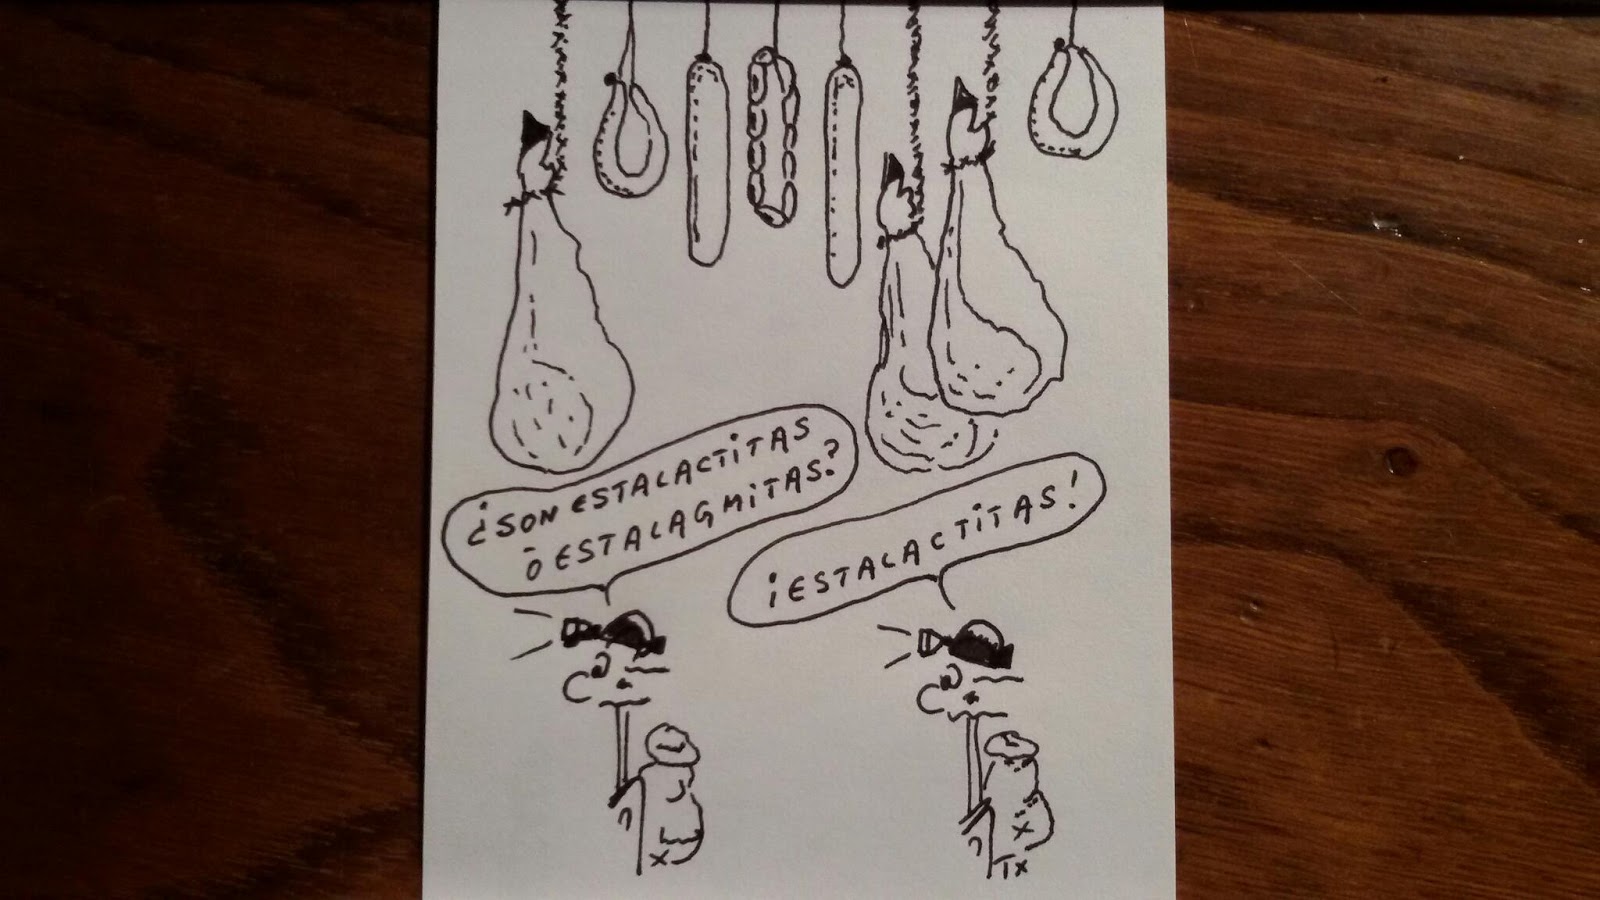 ¿SON ESTALACTITAS
O ESTALAGMITAS?
¡ESTALACTITAS!